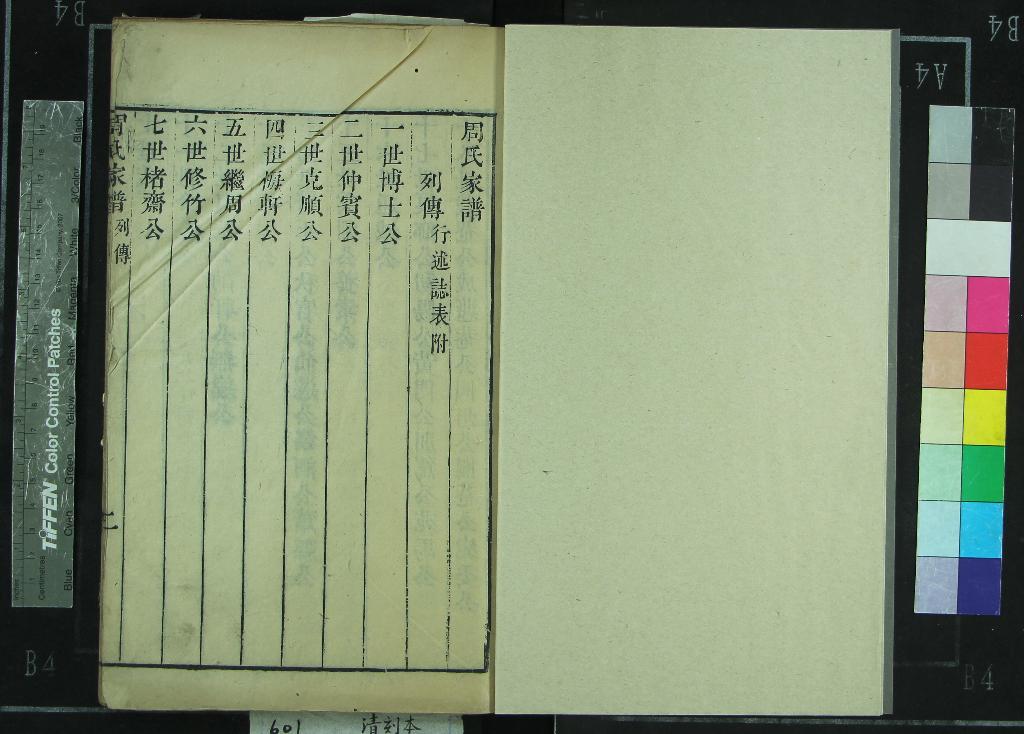 周氏家譜
列傳行述誌表附
一世博士公
二世仲賓公
三世克願公
四世梅軒公
五世繼周公
六世修竹公
七世楮齋公
周氏家譜 列傳
601 清刻本
TIFFEN Color Control Patches
Blue
Cyan
Green
Yellow
Red
Magenta
White
3/Color
Black
Centimetres
Inches
B4
B4
A4
B4
B4